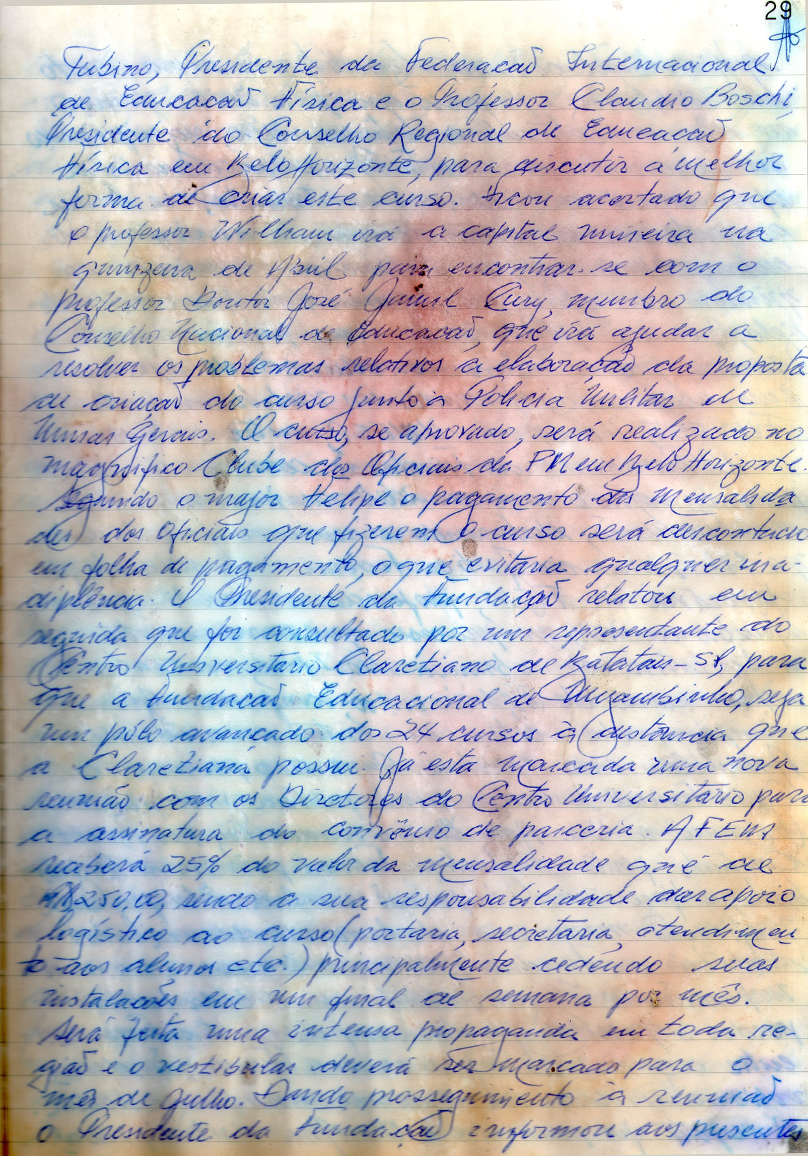 29
Tubino, Presidente da Federacaõ Internacional
de Educacaõ Física e o Professor Claudio Boschi,
Presidente do Conselho Regional de Educacaõ
Física em Belo Horizonte, para discutir a melhor
forma de criar este curso. Ficou acertado que
o professor William irá a capital mineira na
quinzena de Abril para encontrar-se com o
professor Doutor José Jamil Cury, membro do
Conselho Nacional de Educacaõ, que irá ajudar a
resolver os problemas relativos a elaboração da proposta
de criacaõ do curso junto à Polícia Militar de
Minas Gerais. O curso, se aprovado, será realizado no
magnífico Clube dos Oficiais da PM em Belo Horizonte.
Segundo o major Felipe o pagamento das mensalida
des dos Oficiais que fizerem o curso será descontado
em folha de pagamento, o que evitaria qualquer ina-
diplência. O Presidente da Fundação relatou em
seguida que foi consultado por um representante do
Centro Universitário Claretiano de Batatais-SP, para
que a Fundacaõ Educacional de Muzambinho, seja
um pólo avancado dos 24 cursos à distância que
a Claretiana possui. Já está marcada uma nova
reunião com os Diretores do Centro Universitário para
a assinatura do convênio de parceria. A FEM
receberá 25% do valor da mensalidade que é de
R$250,00, sendo a sua responsabilidade dar apoio
logístico ao curso (portaria, secretaria, atendimen
to aos alunos etc.) principalmente cedendo suas
instalacões em um final de semana por mês.
Será feita uma intensa propaganda em toda re-
giaõ e o vestibular deverá ser marcado para o
mês de Julho. Dando prosseguimento à reuniaõ
o Presidente da Fundacaõ informou aos presentes